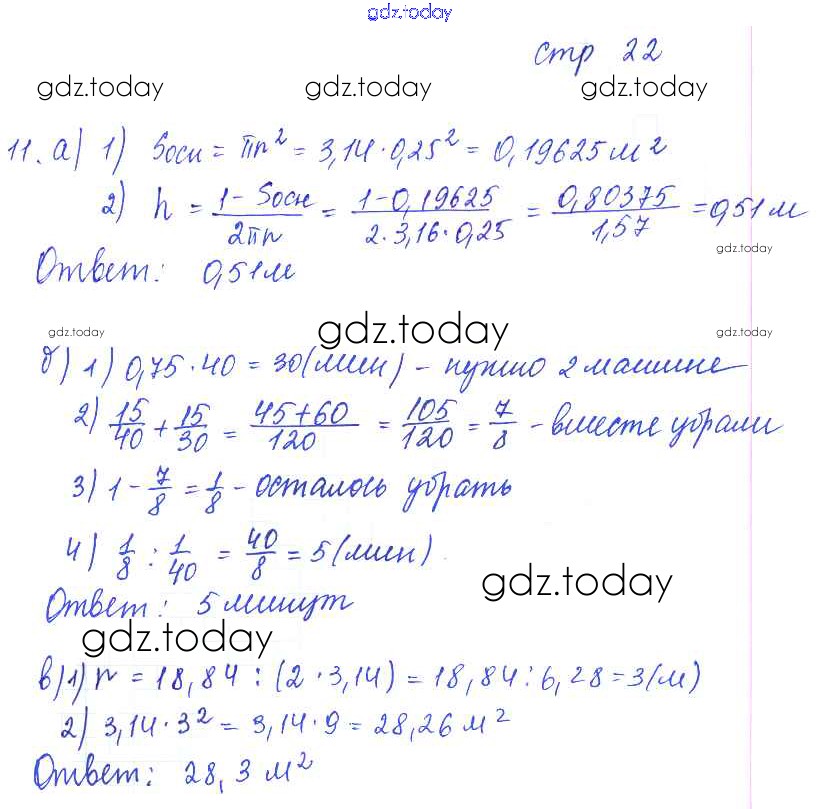 gdz.today
стр 22
gdz.today gdz.today gdz.today
11. а) 1) Sосн = πr² = 3,14 · 0,25² = 0,19625 м²
2) h = (1 - Sосн)/(2πr) = (1 - 0,19625)/(2 · 3,16 · 0,25) = 0,80375/1,57 = 0,51 м
gdz.today
Ответ: 0,51 м
gdz.today gdz.today gdz.today
б) 1) 0,75 · 40 = 30 (мин) - нужно 2 машине
2) 15/40 + 15/30 = (45 + 60)/120 = 105/120 = 7/8 - вместе убрали
3) 1 - 7/8 = 1/8 - осталось убрать
4) 1/8 : 1/40 = 40/8 = 5 (мин)
gdz.today
Ответ: 5 минут
gdz.today
в) 1) r = 18,84 : (2 · 3,14) = 18,84 : 6,28 = 3 (м)
2) 3,14 · 3² = 3,14 · 9 = 28,26 м²
Ответ: 28,3 м²